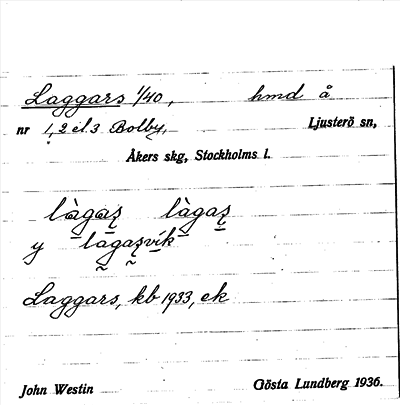 Laggars 1/40, hmd å
nr 1, 2 el. 3 Bolby, Ljusterö sn,
Åkers skg, Stockholms l.
làgaș làgaș
y làgașvik
Laggars, kb 1933, ek
John Westin Gösta Lundberg 1936.